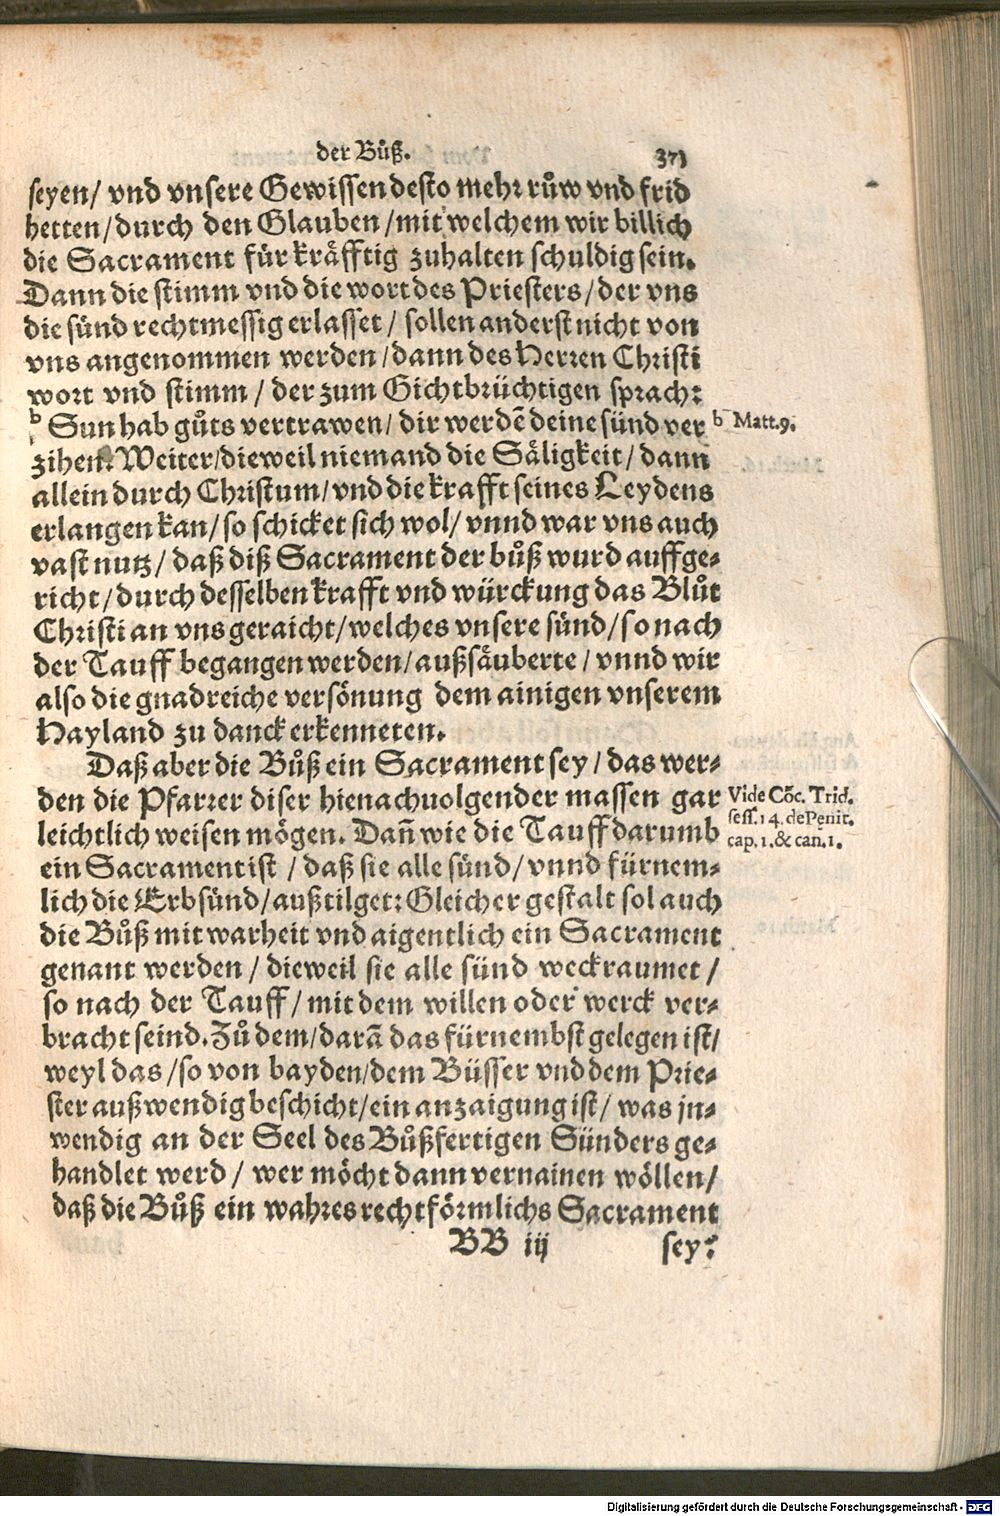 der Bůß. 373
seyen/ vnd vnsere Gewissen desto mehr růw vnd frid
hetten/durch den Glauben/mit welchem wir billich
die Sacrament für kräfftig zuhalten schuldig sein.
Dann die stimm vnd die wort des Priesters/der vns
die sünd rechtmessig erlasset/ sollen anderst nicht von
vns angenommen werden/dann des Herren Christi
wort vnd stimm/ der zum Gichtbrüchtigen sprach:
b Sun hab gůts vertrawen/ dir werdẽ deine sünd ver
b Matt.9.
zihen. Weiter/dieweil niemand die Säligkeit/ dann
allein durch Christum/vnd die krafft seines Leydens
erlangen kan/ so schicket sich wol/ vnnd war vns auch
vast nutz/ daß diß Sacrament der bůß wurd auffge-
richt/durch desselben krafft vnd würckung das Blůt
Christi an vns geraicht/welches vnsere sünd/so nach
der Tauff begangen werden/außsäuberte/ vnnd wir
also die gnadreiche versönung dem ainigen vnserem
Hayland zu danck erkenneten.
Daß aber die Bůß ein Sacrament sey/das wer-
den die Pfarrer diser hienachuolgender massen gar
Vide Cõc. Trid.
sess.14. de Pęnit.
cap.1.& can.1.
leichtlich weisen mögen. Dañ wie die Tauff darumb
ein Sacrament ist / daß sie alle sünd/ vnnd fürnem-
lich die Erbsünd/außtilget: Gleicher gestalt sol auch
die Bůß mit warheit vnd aigentlich ein Sacrament
genant werden/ dieweil sie alle sünd weckraumet/
so nach der Tauff/ mit dem willen oder werck ver-
bracht seind. Zů dem/darã das fürnembst gelegen ist/
weyl das/so von bayden/dem Büsser vnd dem Prie-
ster außwendig beschicht/ein anzaigung ist/ was jn-
wendig an der Seel des Bůßfertigen Sünders ge-
handlet werd/ wer möcht dann vernainen wöllen/
daß die Bůß ein wahres rechtförmlichs Sacrament
BB iij sey?
Digitalisierung gefördert durch die Deutsche Forschungsgemeinschaft - DFG